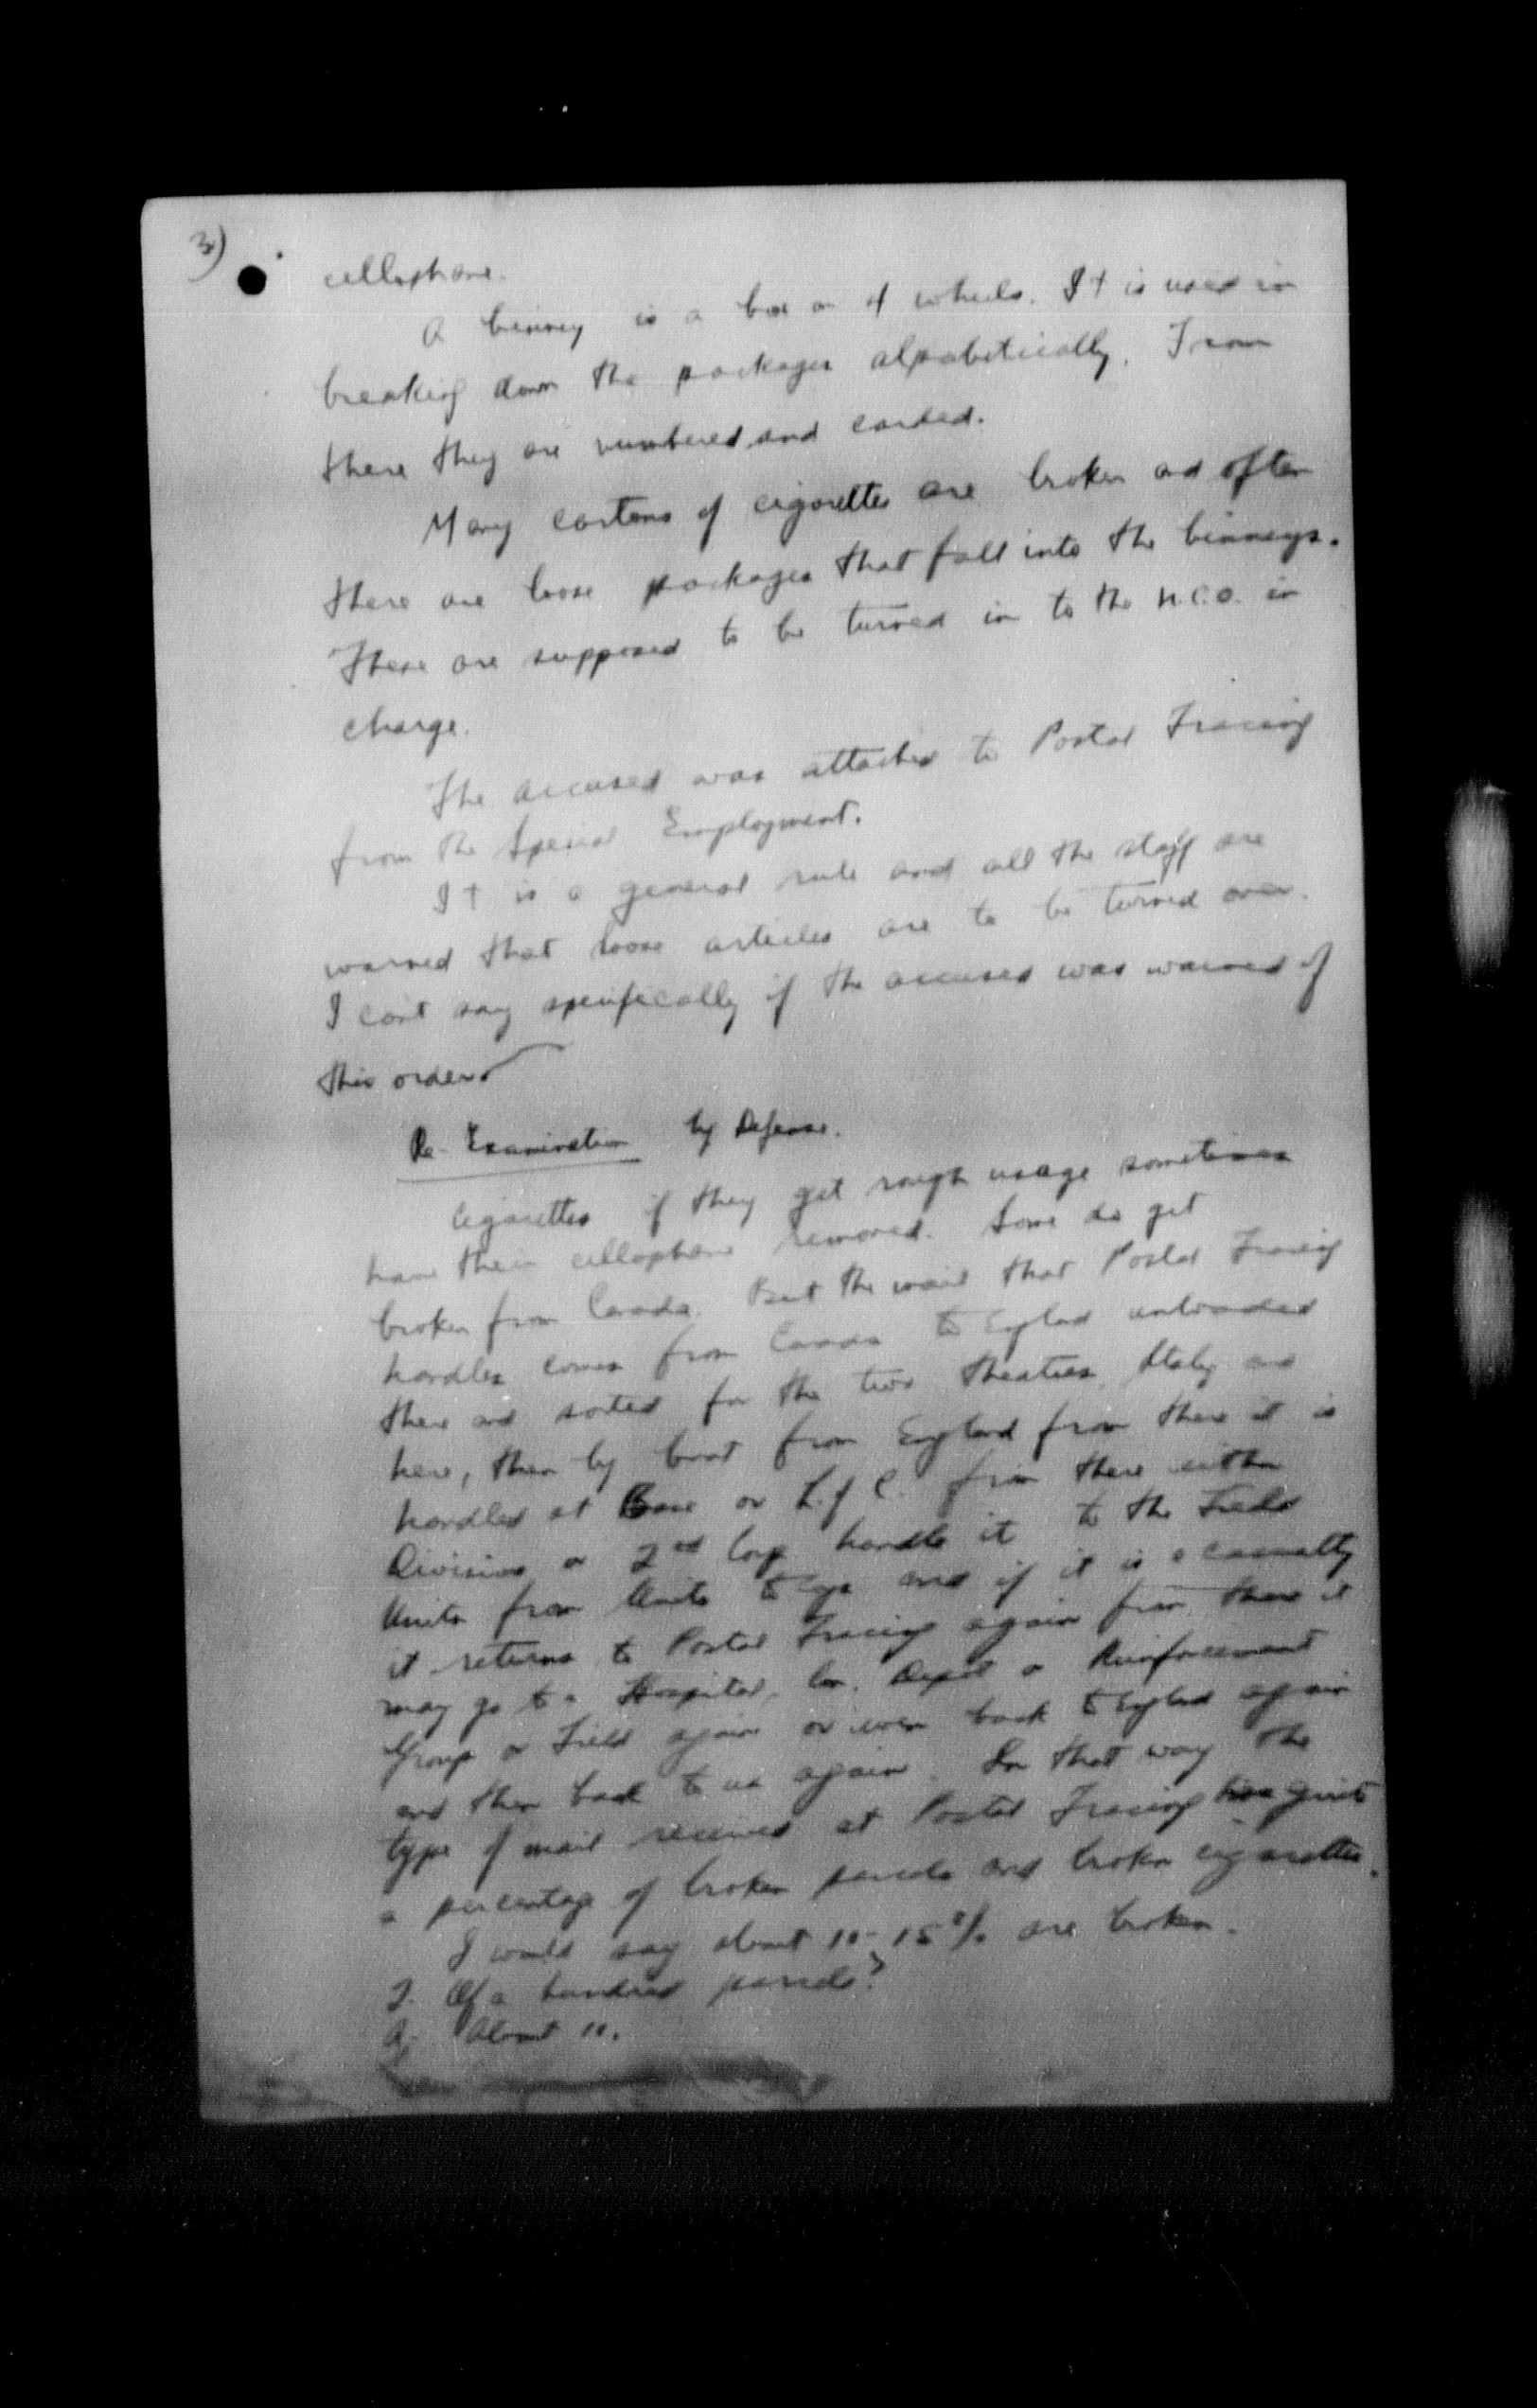 3)
cellophane.
A binney is a box on 4 wheels. It is used in
breaking down the packages alpabetically. From
there they are numbered and carded.
Many cartons of cigarettes are broken and often
there are loose packages that fall into the binneys.
These are supposed to be turned in to the N.C.O. in
charge.
The accused was attached to Postal Tracing
from the Special Employment.
It is a general rule and all the staff are
warned that loose articles are to be turned over.
I can't say specifically if the accused was warned of
this order.
Re-Examination by Defense.
Cigarettes if they get rough usage sometimes
have their cellophane removed. Some do get
broken from Canada. But the mail that Postal Tracing
handles comes from Canada to England unloaded
there and sorted for the two theatres Italy and
here, then by boat from England from there it is
handled at Base or L. of C. from there either
Division or 2nd Corp handle it to the Field
Units from Units to and if it is a casualty
it returns to Postal Tracing again from there it
may go to a Hospital, Con. Depot or Reinforcement
Group or Field again or even back to England again
and then back to us again. In that way the
type of mail received at Postal Tracing has quite
a percentage of broken parcels and broken cigarettes.
I would say about 10-15% are broken.
Q. Of a hundred parcels?
A. About 10.